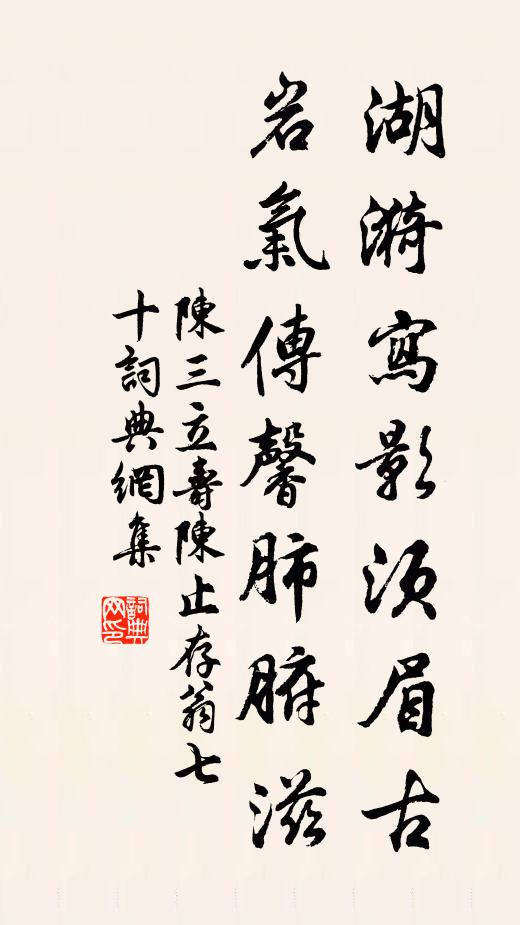 湖漪寫影須眉古
岩氣傳馨肺腑滋
陳三立壽陳止存翁七
十詞典網集
詞典
网印